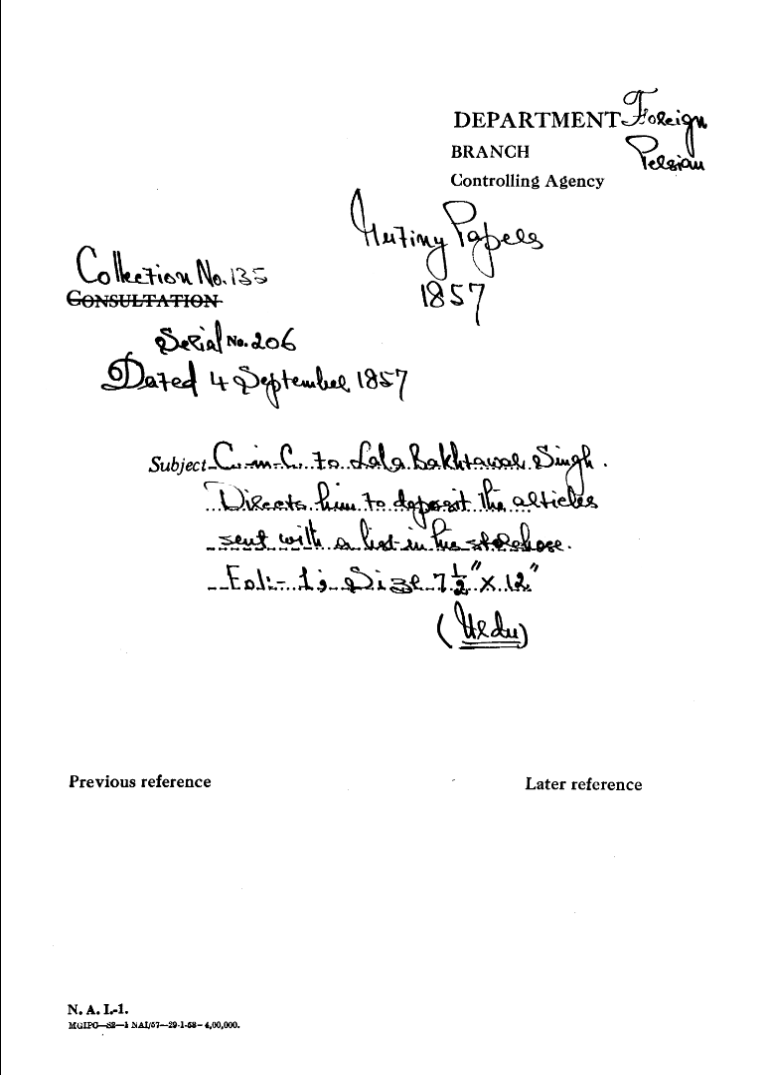 DEPARTMENT Foreign
BRANCH Persian
Controlling Agency
Mutiny Papers
1857
Collection No. 135
CONSULTATION
Serial No. 206
Dated 4 September 1857
Subject C.-in-C. to Lala Bakhtawar Singh.
Directs him to deposit the articles
sent with a list in the storehose.
Fol:- 1; Size 7 1/2" x 12"
(Urdu)
Previous reference
Later reference
N. A. I.-1.
MGIPC—S2—1 NAI/57—29-1-58—4,00,000.